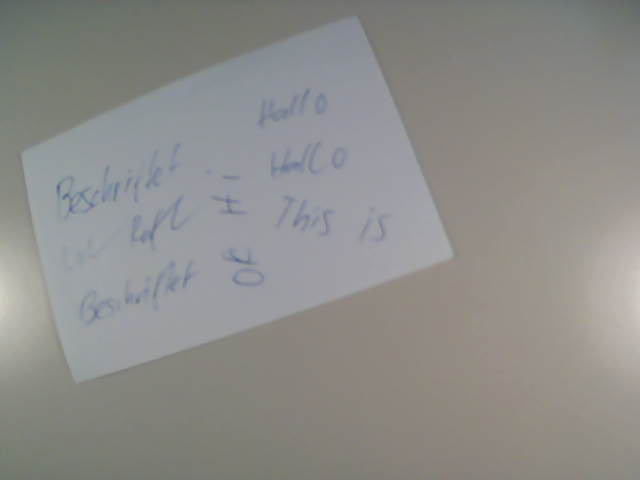 Hallo
Beschriftet Hallo
This is
Beschriftet OK